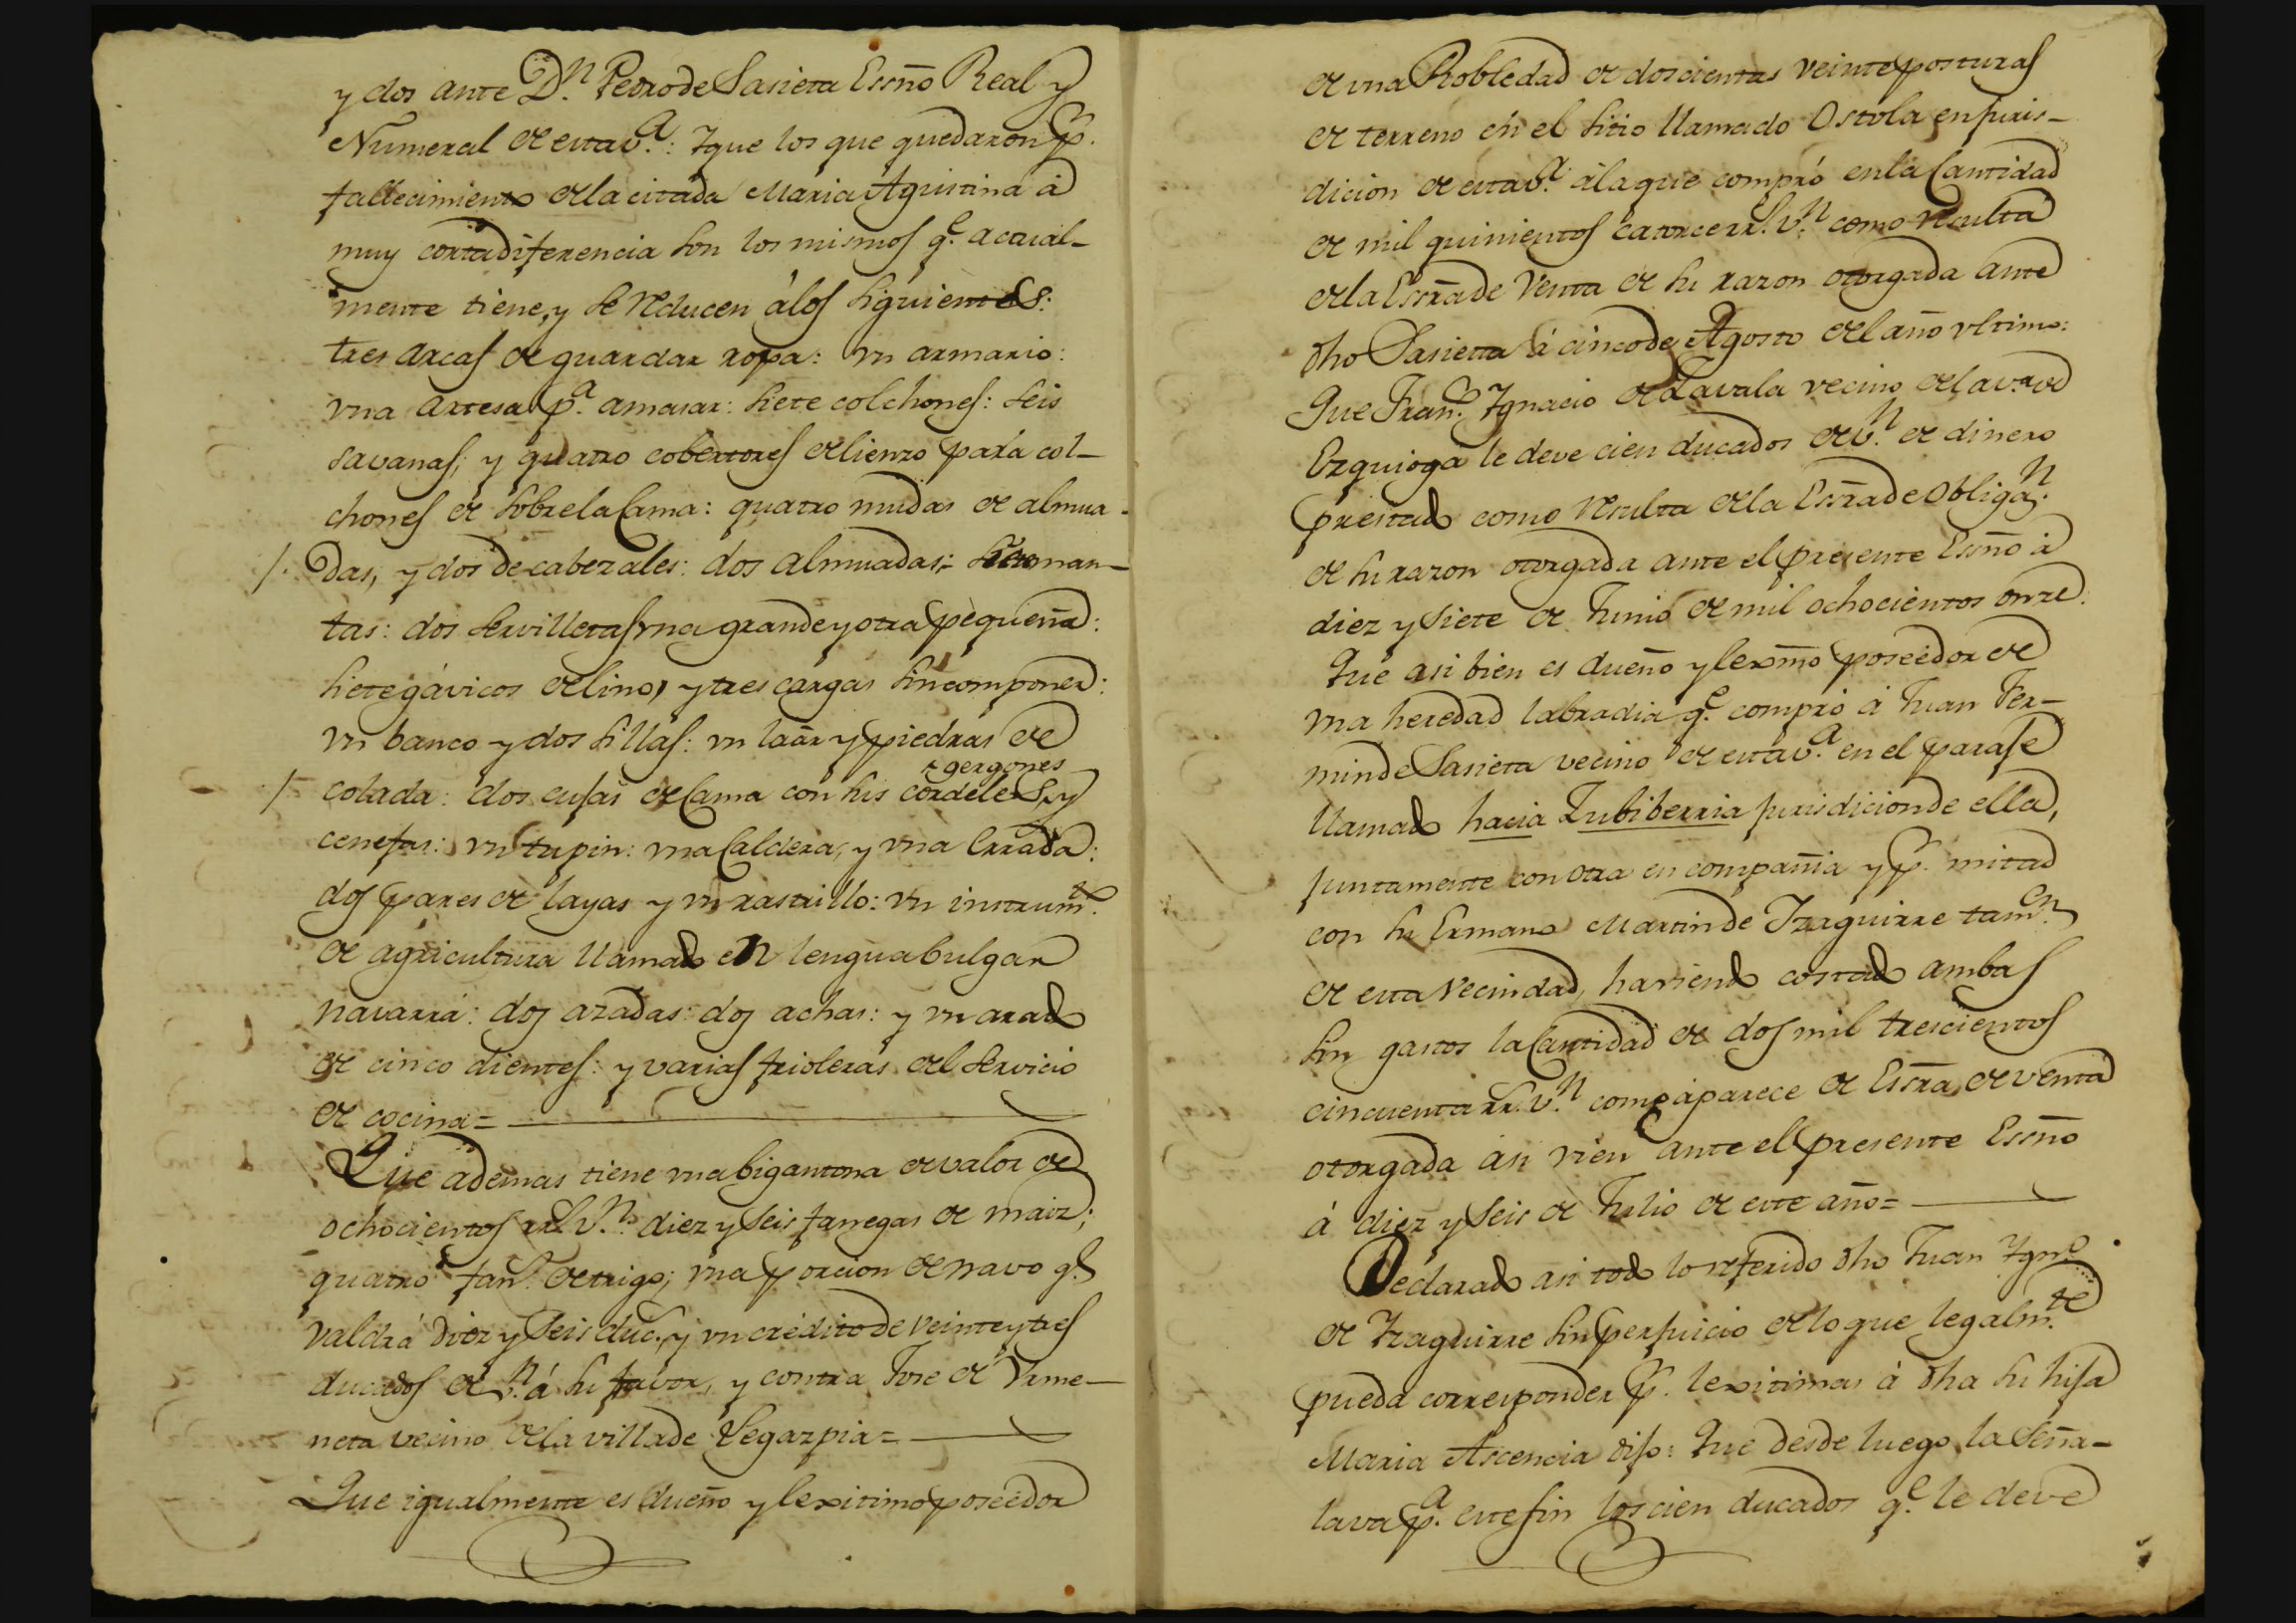 y dos ante D.n Pedro de Sasieta Essño Real y
Numeral de esta v.a: Y que los que quedaron p.r
fallecimiento de la citada Maria Agustina á
muy corta diferencia son los mismos q.e actual-
mente tiene, y se reducen á los siguientes:
tres arcas de guardar ropa: vn armario:
vna artesa p.a amasar: siete colchones: seis
savanas; y quatro cobertores de lienzo para col-
chones de sobre la Cama: quatro mudas de almua-
/. das, y dos de cabezales: dos almuadas; man
tas: dos servilletas vna grande y otra pequeña:
siete gávicos de lino, y tres cargas sin componer:
vn banco y dos sillas: vn laár y piedras de
gergones
/ colada: dos cujas de Cama con sus cordeles, y
cenefas: vn tupin: vna Caldera, y vna Errada:
dos pares de layas y vn rastrillo: vn instrum.to
de agricultura llamado en lengua bulgar
navarra: dos azadas: dos achas: y vn arado
de cinco dientes: y varias frioleras del servicio
de cocina=
Que ademas tiene vna bigantona de valor de
ochocientos rr.s v.n: diez y seis fanegas de maiz;
quatro fan.s de trigo; vna porcion de navo q.e
valdrá diez y seis duc.s, y vn crédito de veinte y tres
ducados de v.n á su favor, y contra Jose de Vrme-
neta vecino de la villa de Legazpia=
Que igualmente es dueño y lexitimo poseedor
de vna Robledad de doscientas veinte posturas
de terreno en el sitio llamado Ostola en juris-
dicion de esta v.a á la que compró en la Cantidad
de mil quinientos catorce rr.s v.n como resulta
de la Essra de Venta de su razon otorgada ante
dho Sasieta á cinco de Agosto del año vltimo:
Que Fran.co Ygnacio de Zavala vecino de la v.a de
Ezquioga le deve cien ducados de v.n de dinero
prestado como resulta de la Essra de Obliga.n
de su razon otorgada ante el presente Essño á
diez y siete de Junio de mil ochocientos onze:
Que asi bien es dueño y lexmo poseedor de
vna heredad labradia q.e compró á Juan Fer-
min de Sasieta vecino de esta v.a en el paraje
llamado hacia Zubiberria jurisdicion de ella,
juntamente con otra en compañia y p.r mitad
con su Ermano Martin de Yzaguirre tam.en
de esta vecindad, haviendo costado ambas
sin gastos la Cantidad de dos mil trescientos
cincuenta rr.s v.n como aparece de Essra de venta
otorgada asi vien ante el presente Essño
á diez y seis de Julio de este año=
Declarado asi todo lo referido dho Juan Ygn.o
de Yzaguirre sin perjuicio de lo que legalm.te
pueda corresponder p.r lexitimas á dha su hija
Maria Ascencia dijo: Que desde luego la Seña-
lava p.a este fin los cien ducados q.e le deve